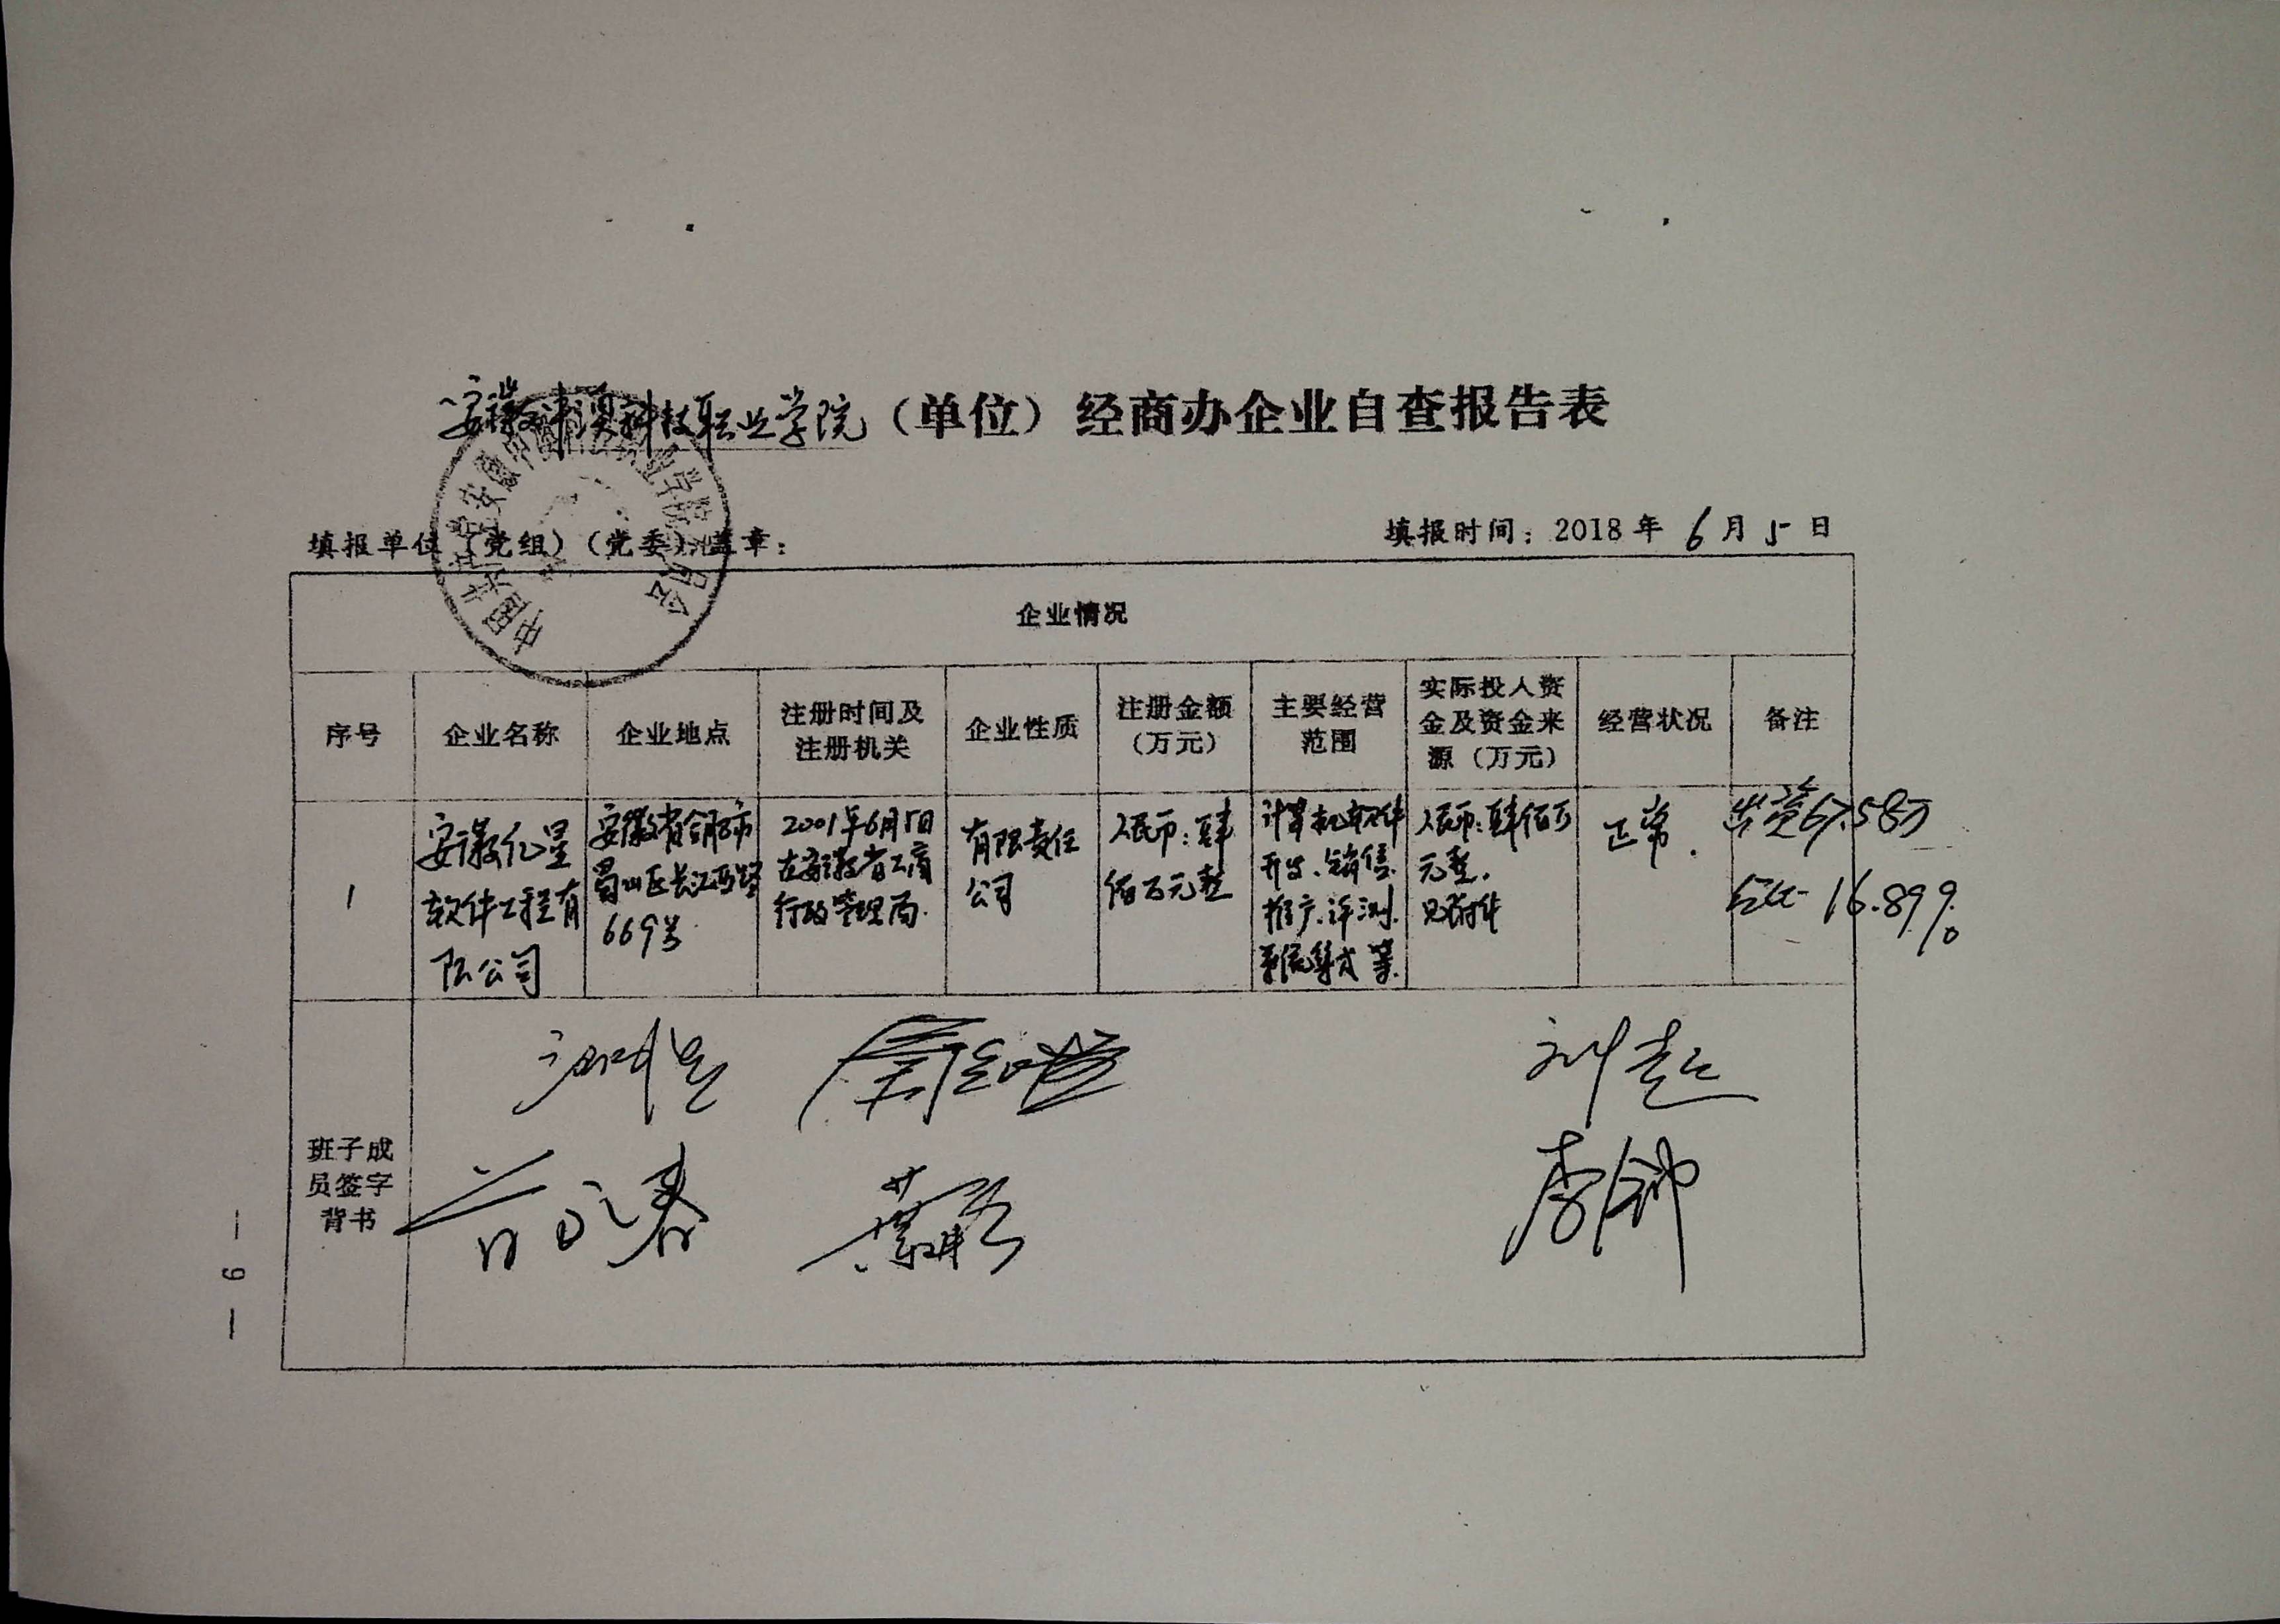 安徽中澳科技职业学院（单位）经商办企业自查报告表
填报单位（党组）（党委）盖章：
填报时间：2018年6月5日
企业情况
序号
企业名称
企业地点
注册时间及
注册机关
企业性质
注册金额
（万元）
主要经营
范围
实际投入资
金及资金来
源（万元）
经营状况
备注
1
安徽亿星
软件工程有
限公司
安徽省合肥市
蜀山区长江西路
669号
2001年6月5日
在安徽省工商
行政管理局.
有限责任
公司
人民币：肆
佰万元整
计算机软件
开发、销售.
推广.评测.
系统集成等.
人民币：肆佰万
元整.
见附件
正常.
出资67.58万
占比16.89%
班子成
员签字
背书
刘超
— 9 —